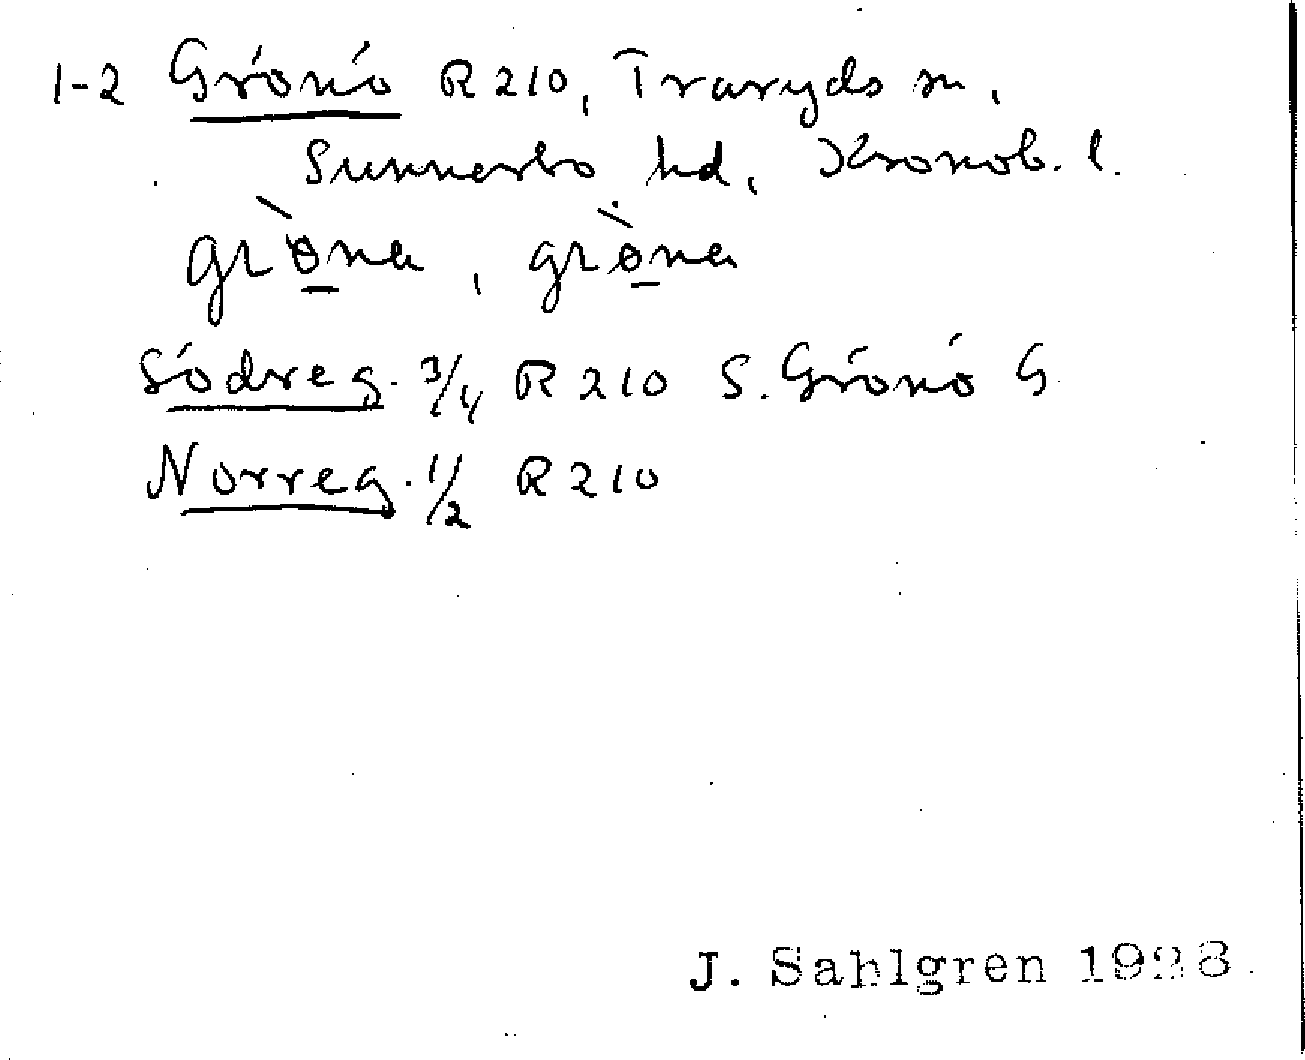 1-2 Grönö R 210, Traryds sn,
Sunnerbo hd, Kronob. l.
grö̀na, grö̀na
Södreg. 3/4 R 210 S. Grönö G
Norreg. 1/2 R 210
J. Sahlgren 1928